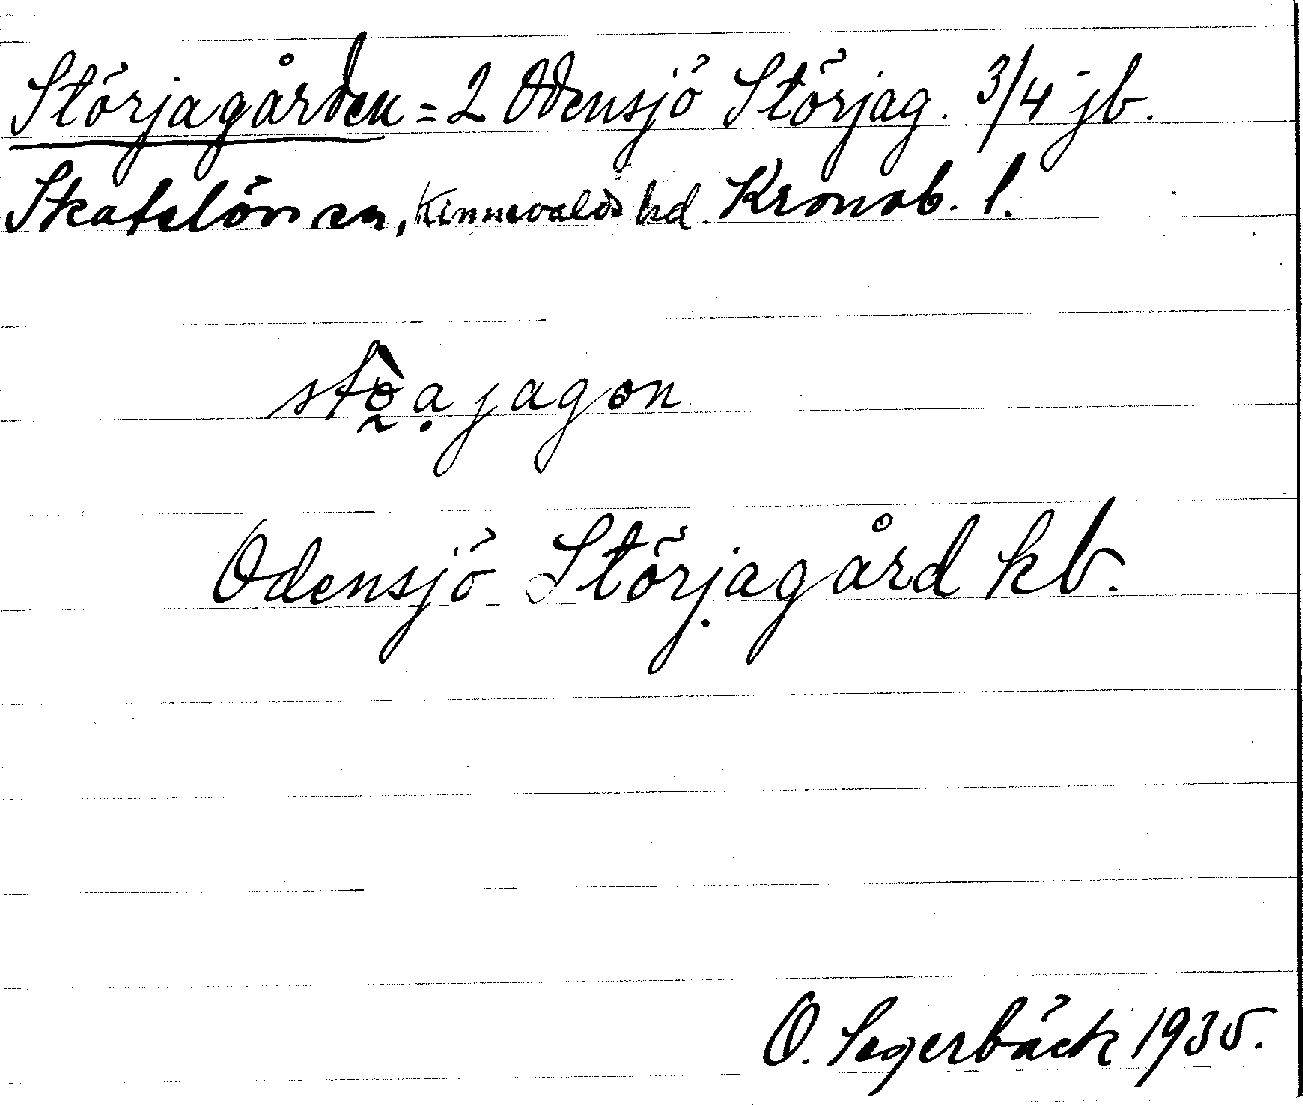 Störjagården = 2 Odensjö Störjag. 3/4 jb.
Skatelövs sn, Kinnevalds hd. Kronob. l.
Odensjö Störjagård kb.
O. Segerbäck 1935.